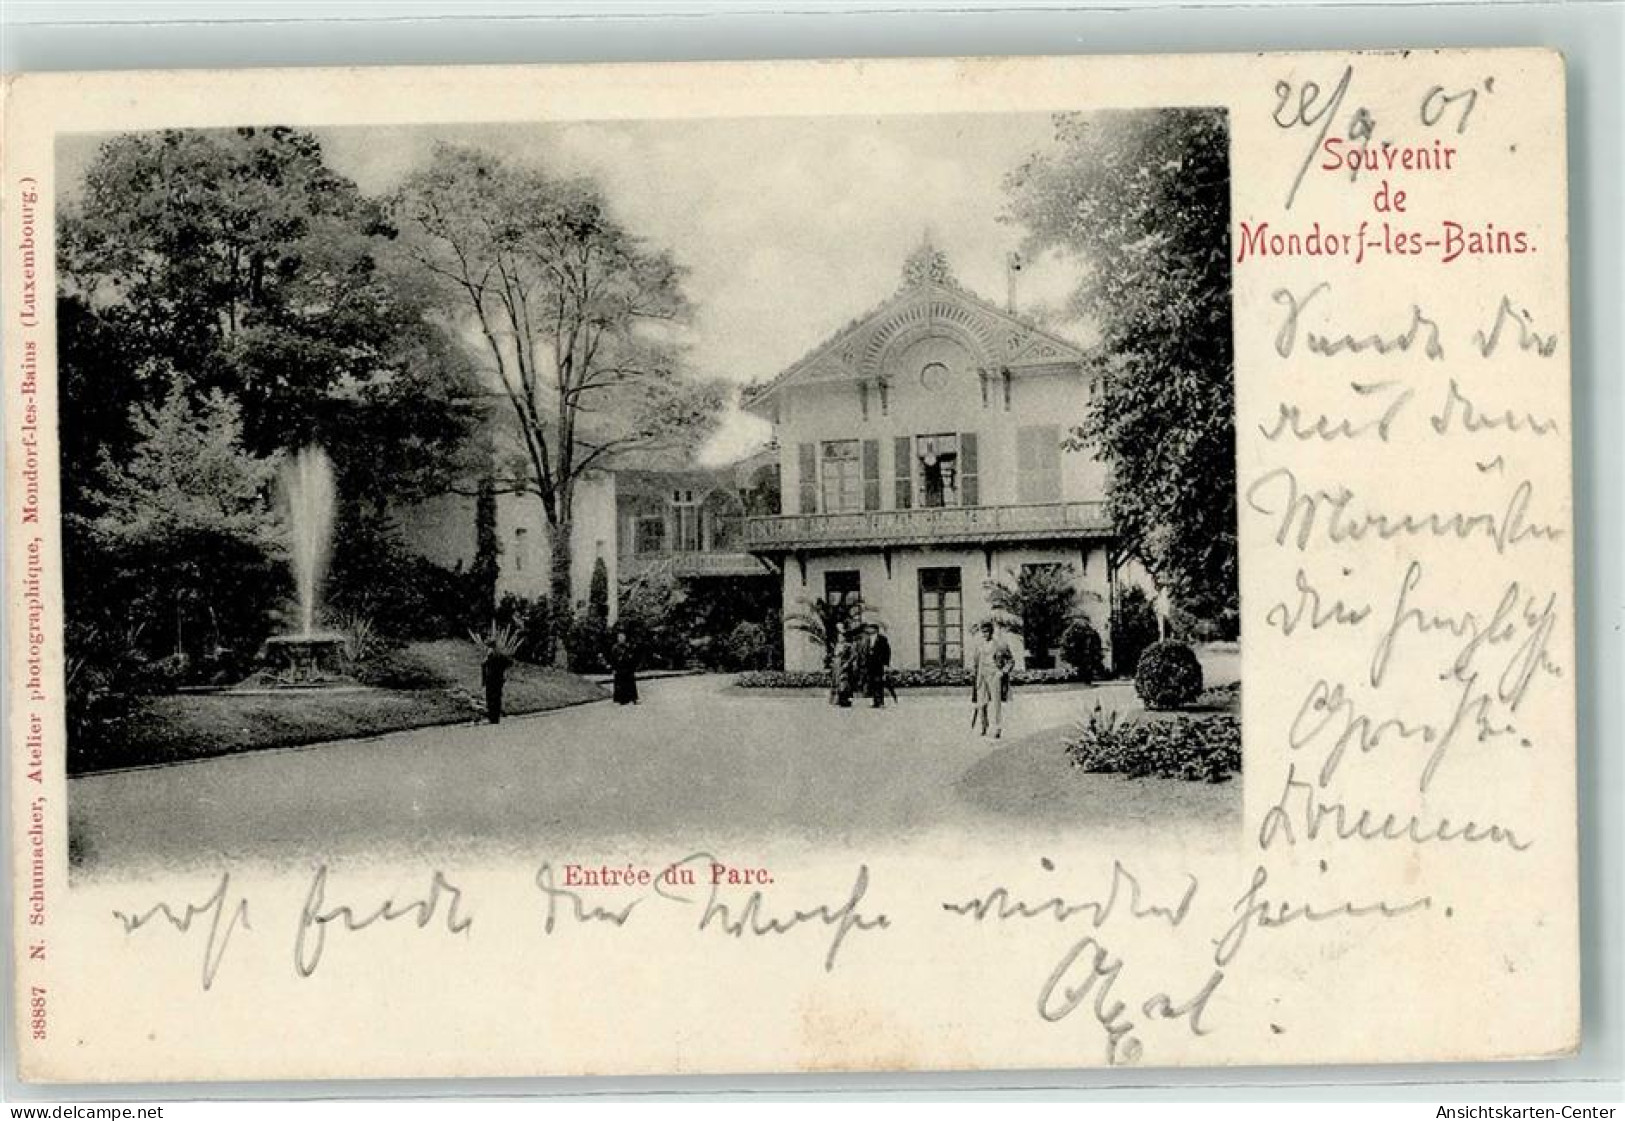 28/9. 01.
Souvenir
de
Mondorf-les-Bains.
Sende dir
aus dem
Manöver
die herzlichsten
Grüße.
Komme
erst Ende der Woche wieder heim.
Axel.
Entrée du Parc.
38887 N. Schumacher, Atelier photographique, Mondorf-les-Bains (Luxembourg.)
delcampe.net
Ansichtskarten-Center